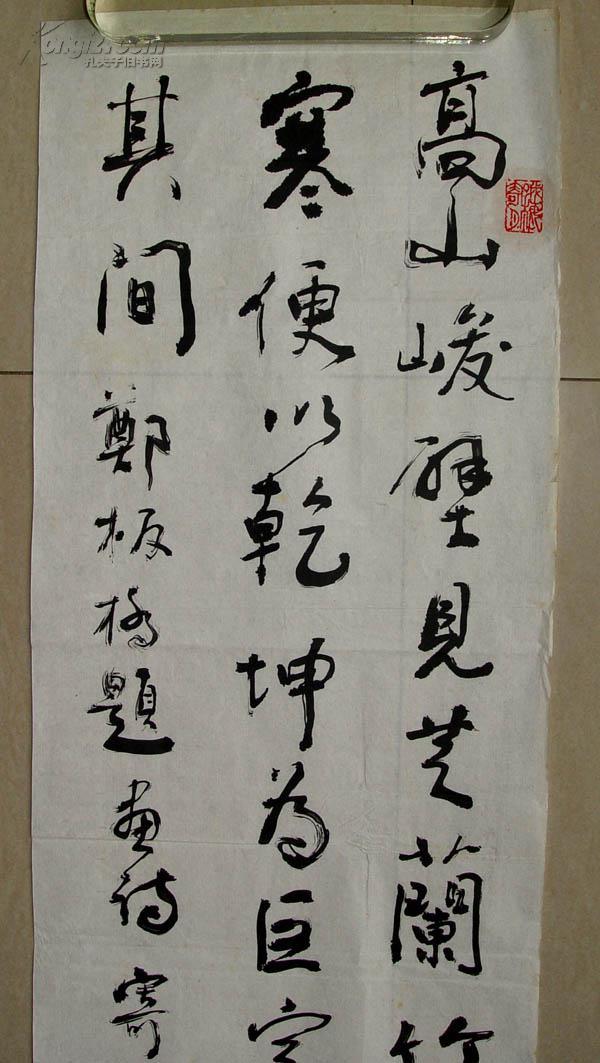 高山峻壁見芝蘭竹
寒便以乾坤為巨室
其間鄭板橋題畫詩寄
Kongfz.com
孔夫子旧书网